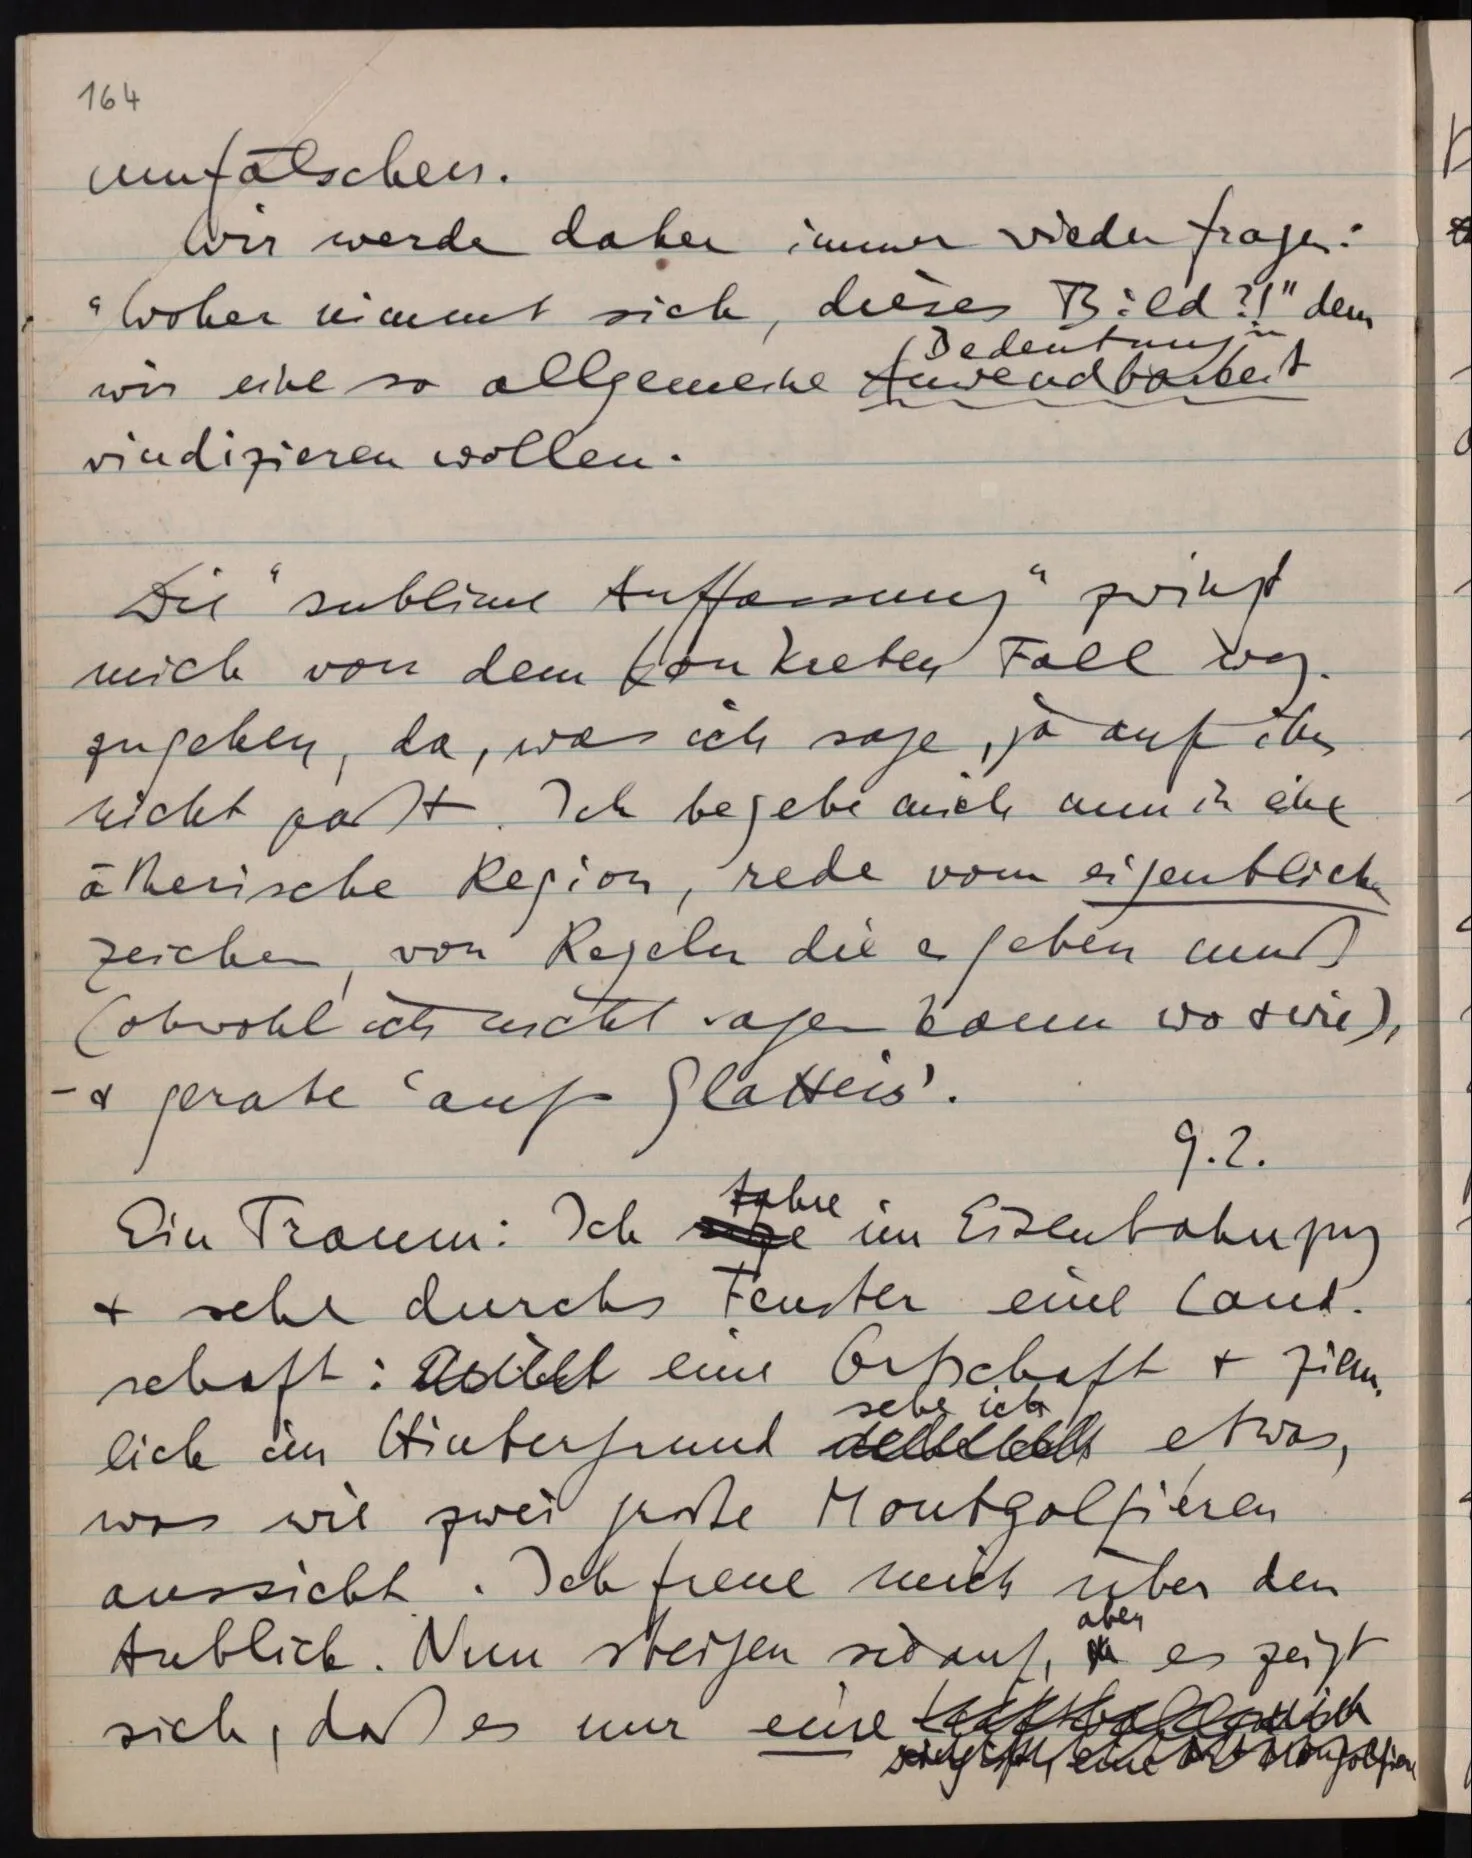 164
umfälschen.
Wir werden daher immer wieder fragen:
"Woher nimmt sich, dieses Bild?!" dem
Bedeutung
wir eine so allgemeine Anwendbarkeit
vindizieren wollen.
Die "sublime Auffassung" zwingt
mich von dem konkreten Fall weg-
zugehen, da, was ich sage, ja auf ihn
nicht paßt. Ich begebe mich nun in eine
ätherische Region, rede vom eigentlichen
Zeichen, von Regeln die es geben muß
(obwohl ich nicht sagen kann wo & wie),
– & gerate 'aufs Glatteis'.
9.2.
fahre
Ein Traum: Ich im Eisenbahnzug
& sehe durchs Fenster eine Land-
schaft: eine Ortschaft & ziem-
sehe ich
lich im Hintergrund etwas,
was wie zwei große Montgolfieren
aussieht. Ich freue mich über den
aber
Anblick. Nun steigen sie auf, es zeigt
sich, daß es nur eine
eine Montgolfiere